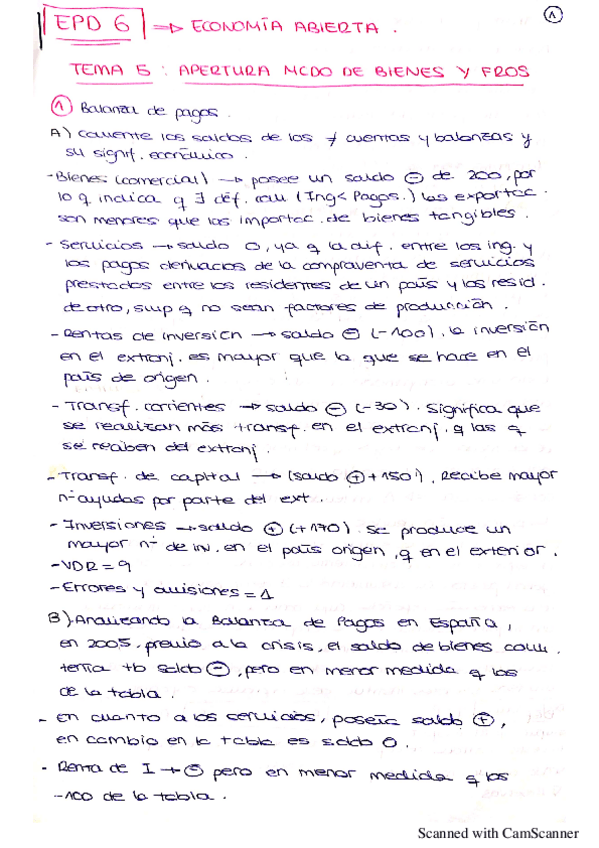 EPD 6 => ECONOMÍA ABIERTA.
1
TEMA 5: APERTURA MCDO DE BIENES Y FROS
1 Balanza de pagos.
A) Comente los saldos de los ≠ cuentas y balanzas y
su signif. económico.
-Bienes (comercial) → posee un saldo ⊖ de 200, por
lo q indica q ∃ déf. com (Ing < Pagos.) las exportac.
son menores que las importac. de bienes tangibles.
- Servicios → saldo 0, ya q la dif. entre los ing. y
los pagos derivados de la compraventa de servicios
prestados entre los residentes de un país y los resid.
de otro, sup q no sean factores de producción.
- Rentas de inversión → saldo ⊖ (-100). la inversión
en el extranj. es mayor que la que se hace en el
país de origen.
- Transf. corrientes → saldo ⊖ (-30). Significa que
se realizan más transf. en el extranj. q las q
se reciben del extranj.
- Transf. de capital → (saldo ⊕ +150), Recibe mayor
nº ayudas por parte del ext.
- Inversiones → saldo ⊕ (+170). Se produce un
mayor nº de inv. en el país origen, q en el exterior.
-VDR = 9
- Errores y omisiones = 1
B) Analizando la Balanza de Pagos en España,
en 2005, previo a la crisis, el saldo de bienes com.
tenía tb saldo ⊖, pero en menor medida q los
de la tabla.
- En cuanto a los servicios, poseía saldo ⊕,
en cambio en la tabla es saldo 0.
- Renta de I → ⊖ pero en menor medida q los
-100 de la tabla.
Scanned with CamScanner